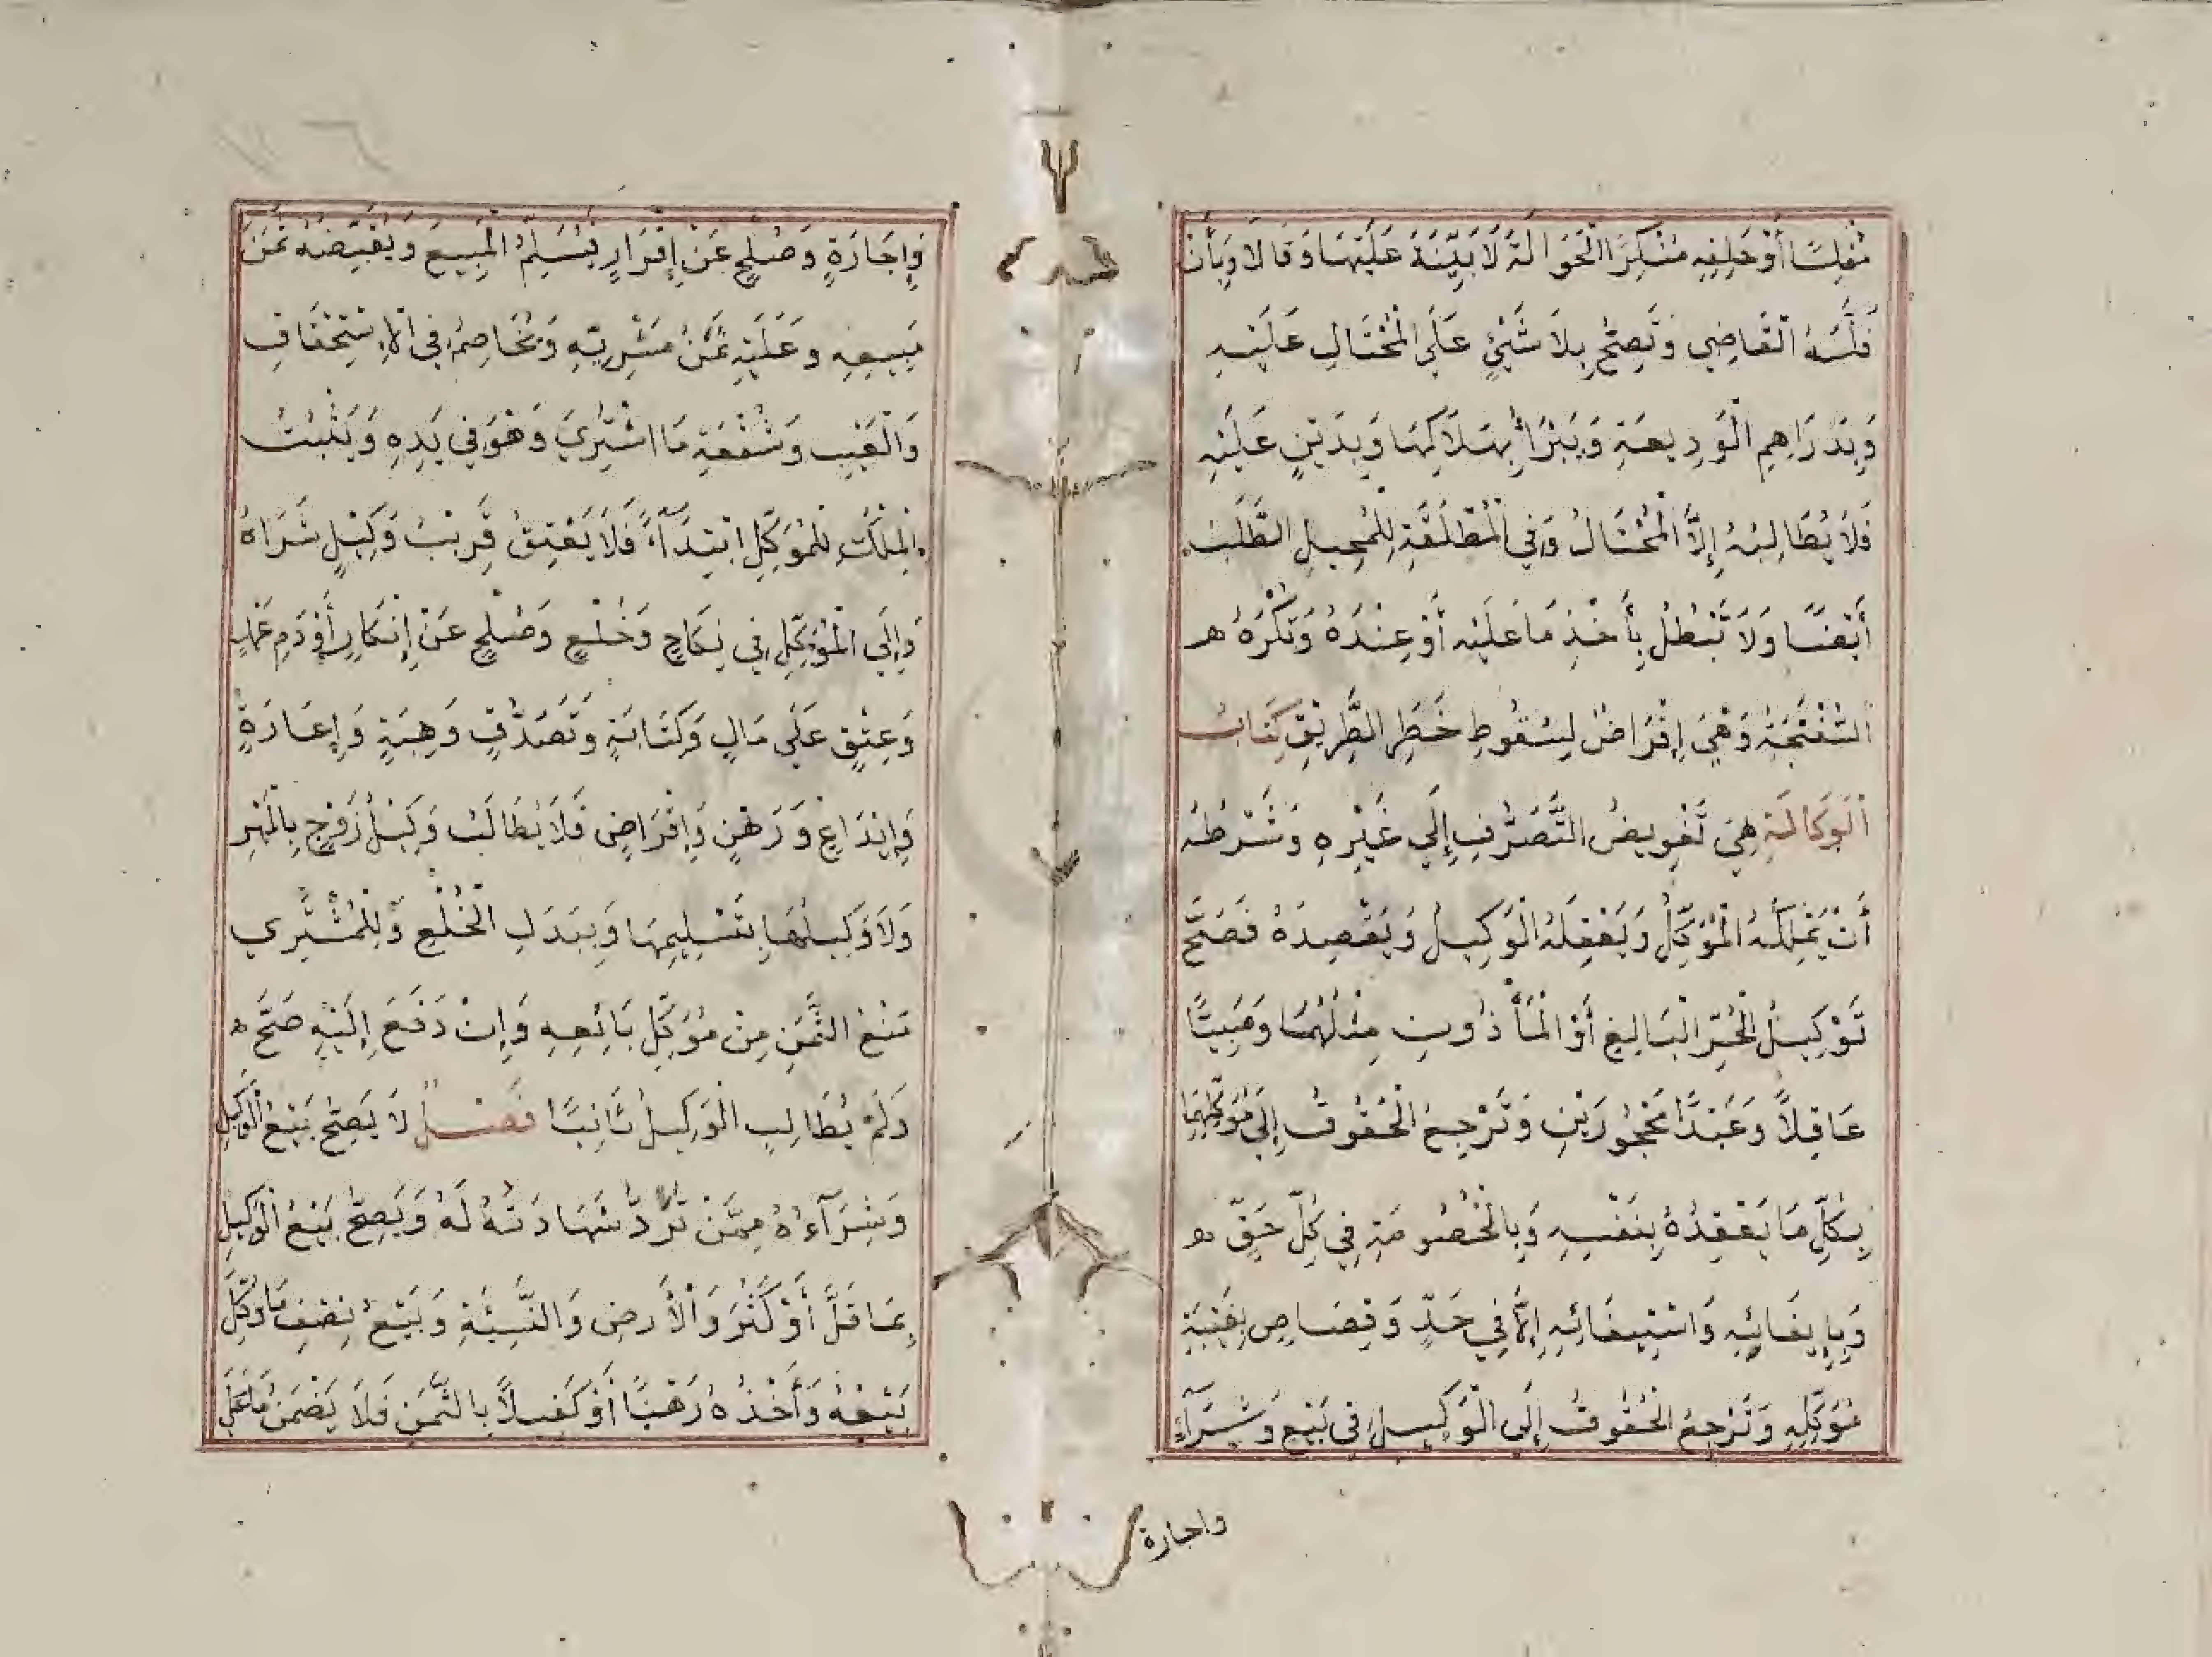 مُفْلِسًا أَوْ حَلِفِهِ مُنْكِرًا الْحَوَالَةَ لَا بَيِّنَةَ عَلَيْهَا وَقَالَا وَبِأَنْ
فَلَّسَهُ الْقَاضِي وَتَصِحُّ بِلَا شَيْئٍ عَلَى الْمُحْتَالِ عَلَيْهِ
وَبِدَرَاهِمِ الْوَدِيعَةِ وَيَبْرَأُ بِهَلَاكِهَا وَبِدَيْنٍ عَلَيْهِ
فَلَا يُطَالِبُهُ إِلَّا الْمُحْتَالُ وَفِي الْمُطْلَقَةِ لِلْمُحِيلِ الطَّلَبُ
أَيْضًا وَلَا تَبْطُلُ بِأَخْذِ مَا عَلَيْهِ أَوْ عِنْدَهُ وَتُكْرَهُ ه
السُّفْتَجَةُ وَهِيَ إِقْرَاضٌ لِسُقُوطِ خَطَرِ الطَّرِيْقِ كِتَابُ
الْوَكَالَةِ هِيَ تَفْوِيضُ التَّصَرُّفِ إِلَى غَيْرِهِ وَشَرْطُهُ
أَنْ يَمْلِكَهُ الْمُوَكِّلُ وَيَعْقِلَهُ الْوَكِيلُ وَيَقْصِدَهُ فَصَحَّ
تَوْكِيلُ الْحُرِّ الْبَالِغِ أَوْ الْمَأْذُونِ مِثْلُهُمَا وَصَبِيًّا
عَاقِلًا وَعَبْدًا مَحْجُورَيْنِ وَتَرْجِعُ الْحُقُوقُ إِلَى مُوَكِّلِهِمَا
بِكُلِّ مَا يَعْقِدُهُ بِنَفْسِهِ وَبِالْخُصُومَةِ فِي كُلِّ حَقٍّ ه
وَبِإِيفَائِهِ وَاسْتِيفَائِهِ إِلَّا فِي حَدٍّ وَقِصَاصٍ بِغَيْبَةِ
مُوَكِّلِهِ وَتَرْجِعُ الْحُقُوقُ إِلَى الْوَكِيلِ فِي بَيْعٍ وَشِرَآءٍ
واجارة
وَإِجَارَةٍ وَصُلْحٍ عَنْ إِقْرَارٍ فَيُسَلِّمُ الْمَبِيعَ وَيَقْبِضُهُ ثَمَنَ
مَبِيعِهِ وَعَلَيْهِ ثَمَنُ مَشْرِيِّهِ وَيُخَاصِمُ فِي الْاِسْتِحْقَاقِ
وَالْعَيْبِ وَشُفْعَةِ مَا اشْتَرَى وَهُوَ فِي يَدِهِ وَيَثْبُتُ
الْمِلْكُ لِلْمُوَكِّلِ ابْتِدَآءً فَلَا يَعْتِقُ قَرِيْبُ وَكِيْلٍ شَرَاهُ
وَإِلَى الْمُوَكِّلِ فِي نِكَاحٍ وَخُلْعٍ وَصُلْحٍ عَنْ إِنْكَارٍ أَوْ دَمِ عَمْدٍ
وَعِتْقٍ عَلَى مَالٍ وَكِتَابَةٍ وَتَصَدُّقٍ وَهِبَةٍ وَإِعَارَةٍ
وَإِيْدَاعٍ وَرَهْنٍ وَإِقْرَاضٍ فَلَا يُطَالَبُ وَكِيْلُ زَوْجٍ بِالْمَهْرِ
وَلَا وَكِيلُهَا بِتَسْلِيمِهَا وَبِبَدَلِ الْخُلْعِ وَلِلْمُشْتَرِي
مَنْعُ الثَّمَنِ مِنْ مُوَكِّلِ بَائِعِهِ وَإِنْ دَفَعَ إِلَيْهِ صَحَّ ه
وَلَمْ يُطَالِبِ الْوَكِيلُ ثَانِيًا فَصْلٌ لَا يَصِحُّ بَيْعُ الْوَكِيلِ
وَشِرَآءُهُ مِمَّنْ تُرَدُّ شَهَادَتُهُ لَهُ وَيَصِحُّ بَيْعُ الْوَكِيلِ
بِمَا قَلَّ أَوْ كَثُرَ وَالْأَرضِ وَالنَّسِيْئَةِ وَبَيْعُ نِصْفِ مَا وُكِّلَ
بِبَيْعِهِ وَأَخْذُهُ رَهْنًا أَوْ كَفِيلًا بِالثَّمَنِ فَلَا يَضْمَنُ